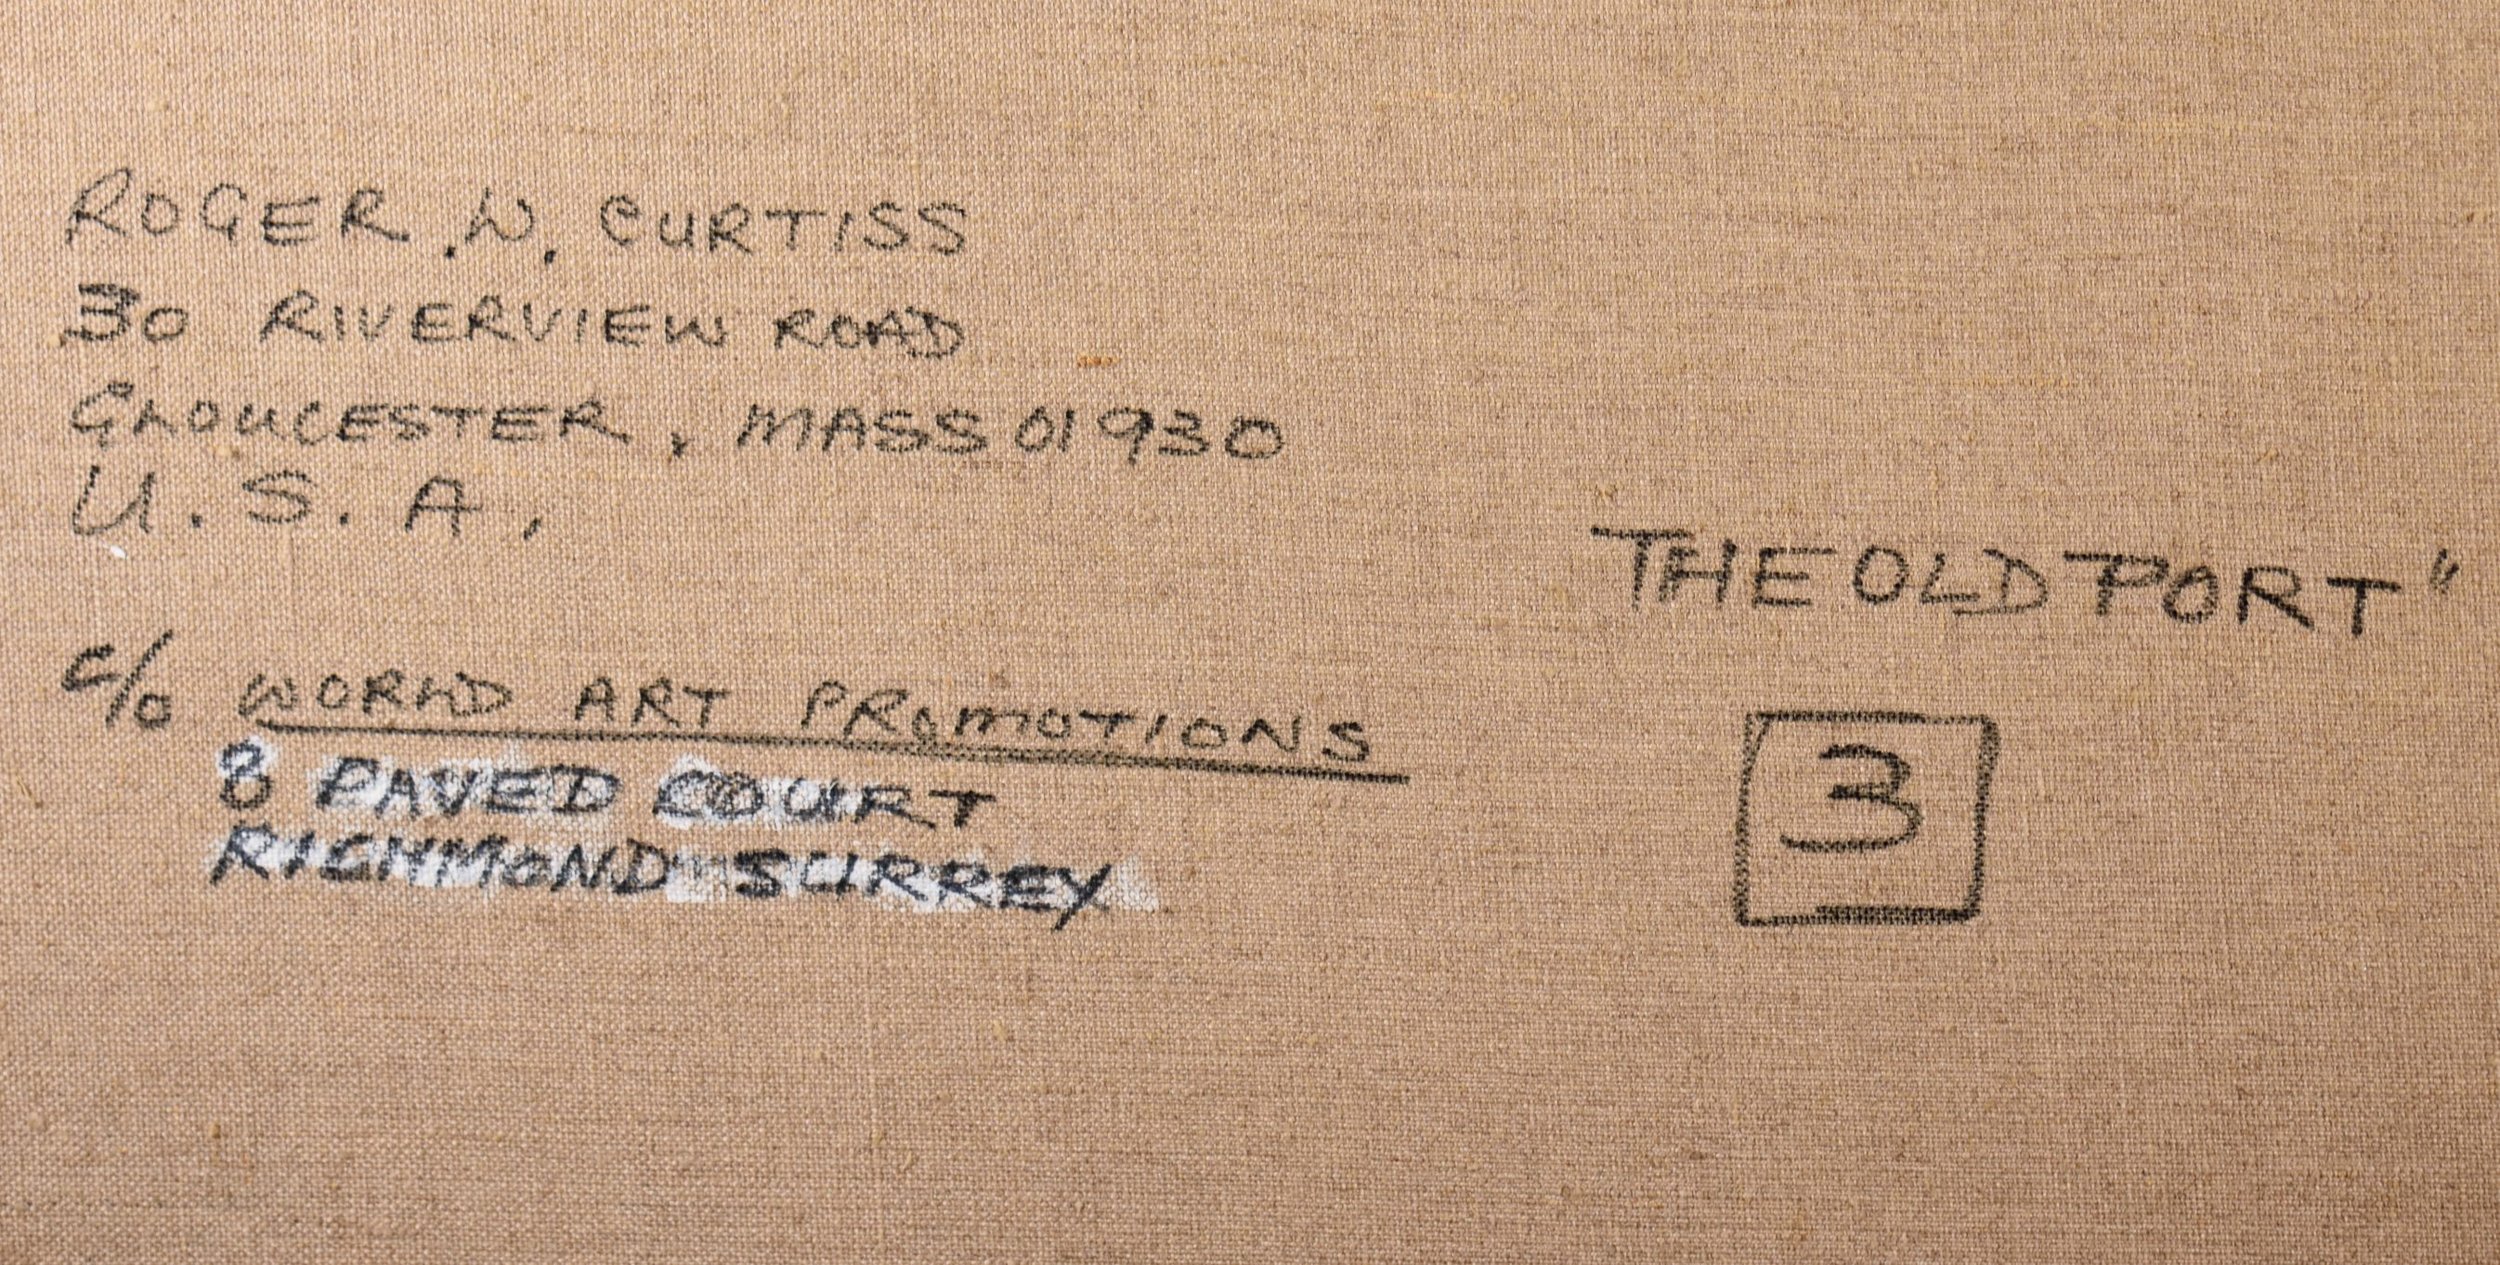 ROGER .W. CURTISS
30 RIVERVIEW ROAD
GLOUCESTER, MASS 01930
U.S.A.
c/o WORLD ART PROMOTIONS
8 PAVED COURT
RICHMOND SURREY
THE OLD PORT"
3